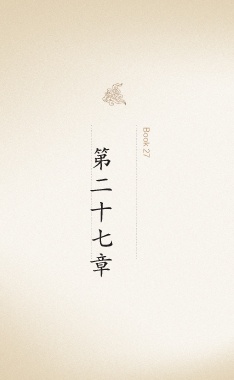 Book 27
第二十七章